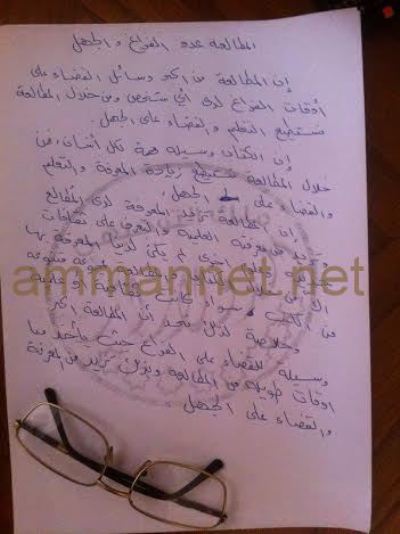 المطالعة عدو الفراغ والجهل
إن المطالعة من أكبر وسائل القضاء على
أوقات الفراغ لدى أي شخص ومن خلال المطالعة
نستطيع التعلم والقضاء على الجهل.
إن الكتاب وسيلة مهمة لكل انسان، فمن
خلال المطالعة نستطيع زيادة المعرفة والتعلم
والقضاء على الجهل.
إن المطالعة تزيد المعرفة لدى المطالع
وتزيد من معرفته العلمية والتعرف على ثقافات
لم يكن لدينا المعرفة بها
ammannet.net
من الكتب سواء كانت
وخلاصة لذلك نجد أن المطالعة أكبر
وسيلة للقضاء على الفراغ حيث يأخذ منا
اوقات طويلة من المطالعة وبذلك تزيد من المعرفة
والقضاء على الجهل.